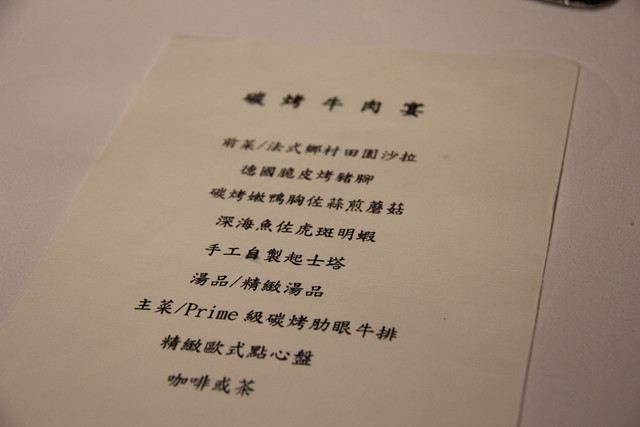 碳烤牛肉宴
前菜/法式鄉村田園沙拉
德國脆皮烤豬腳
碳烤嫩鴨胸佐蒜煎蘑菇
深海魚佐虎斑明蝦
手工自製起士塔
湯品/精緻湯品
主菜/Prime級碳烤肋眼牛排
精緻歐式點心盤
咖啡或茶